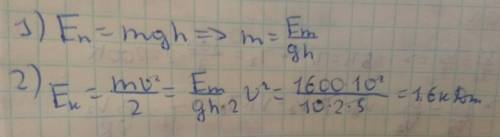 1) Eп = mgh => m = Em/gh
2) Eк = mv²/2 = Em/gh·2 v² = 1600·10²/10·2·5 = 1.6кДж